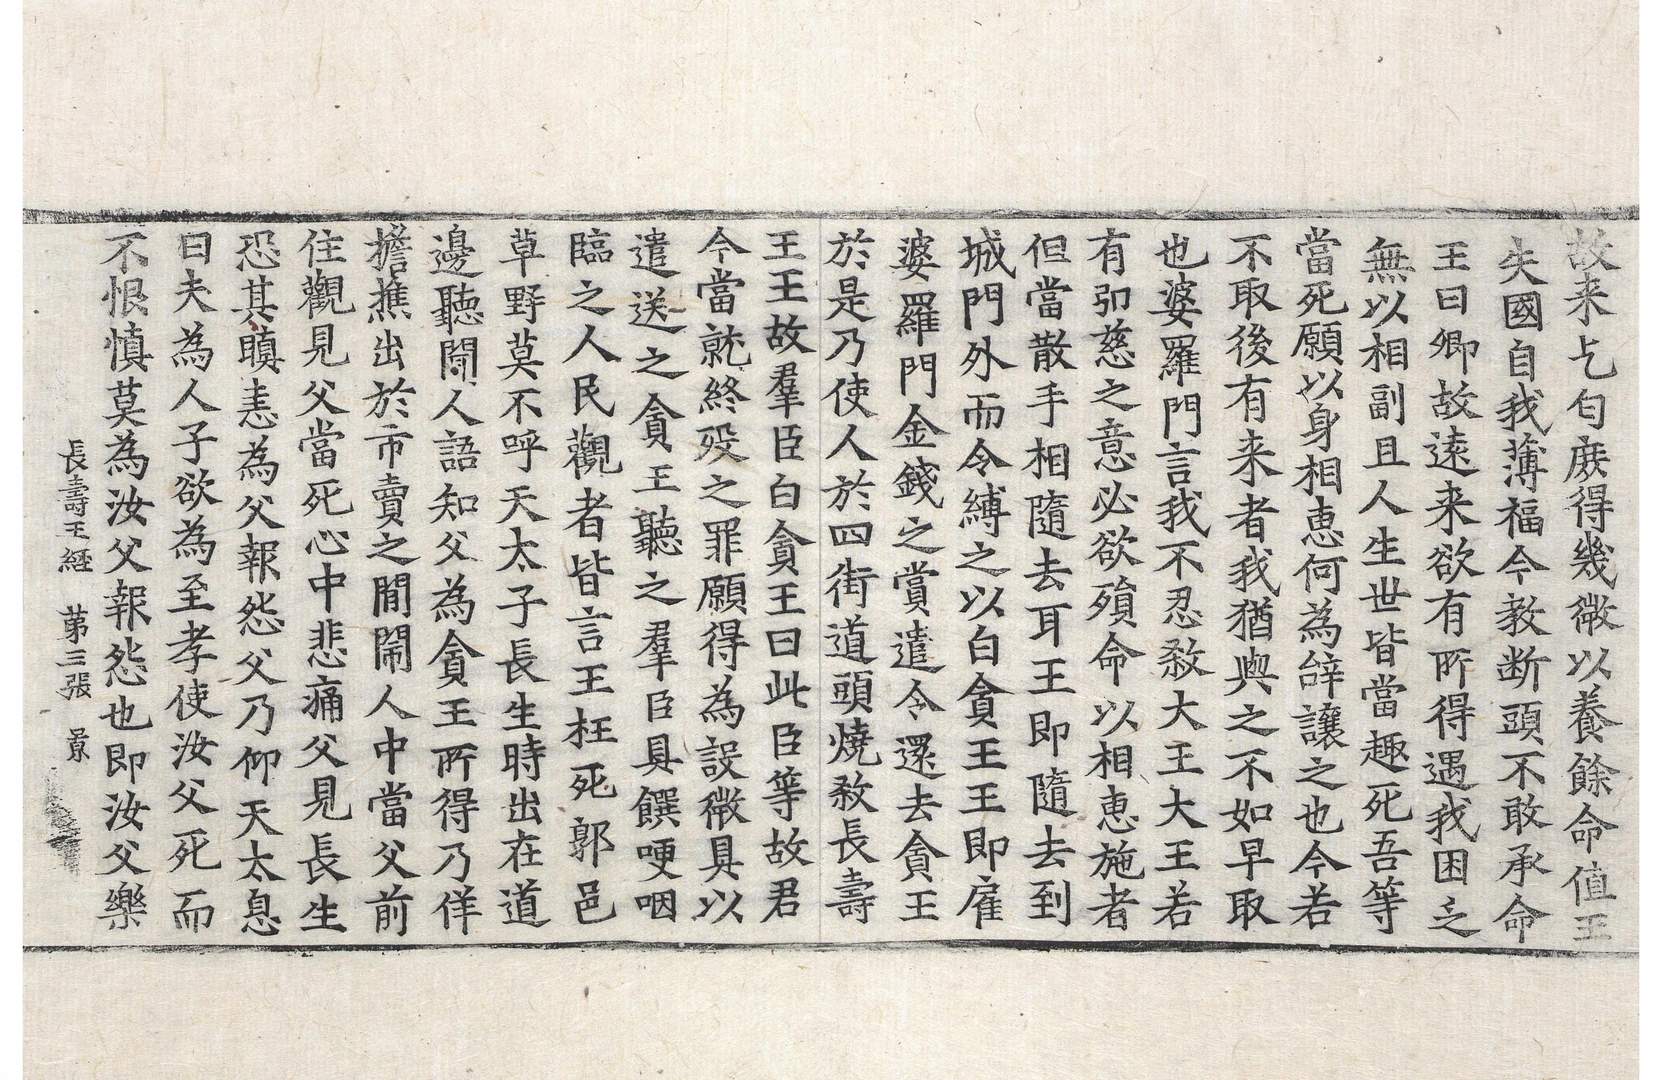 故来乞匂庻得幾微以養餘命值王
失國自我薄福今教断頭不敢承命
王曰卿故遠来欲有所得遇我困乏
無以相副且人生世皆當趣死吾等
當死願以身相惠何為辝讓之也今若
不取後有来者我猶與之不如早取
也婆羅門言我不忍煞大王大王若
有弘慈之意必欲殞命以相惠施者
但當散手相隨去耳王即隨去到
城門外而令縛之以白貪王王即雇
婆羅門金錢之賞遣令還去貪王
於是乃使人於四街道頭燒煞長壽
王王故羣臣白貪王曰此臣等故君
今當就終歿之罪願得為設微具以
遣送之貪王聽之羣臣具饌哽咽
臨之人民觀者皆言王枉死郭邑
草野莫不呼天太子長生時出在道
邊聽聞人語知父為貪王所得乃佯
擔樵出於市賣之閒閙人中當父前
住觀見父當死心中悲痛父見長生
恐其瞋恚為父報怨父乃仰天太息
曰夫為人子欲為至孝使汝父死而
不恨慎莫為汝父報怨也即汝父樂
長壽王經　苐三張　景